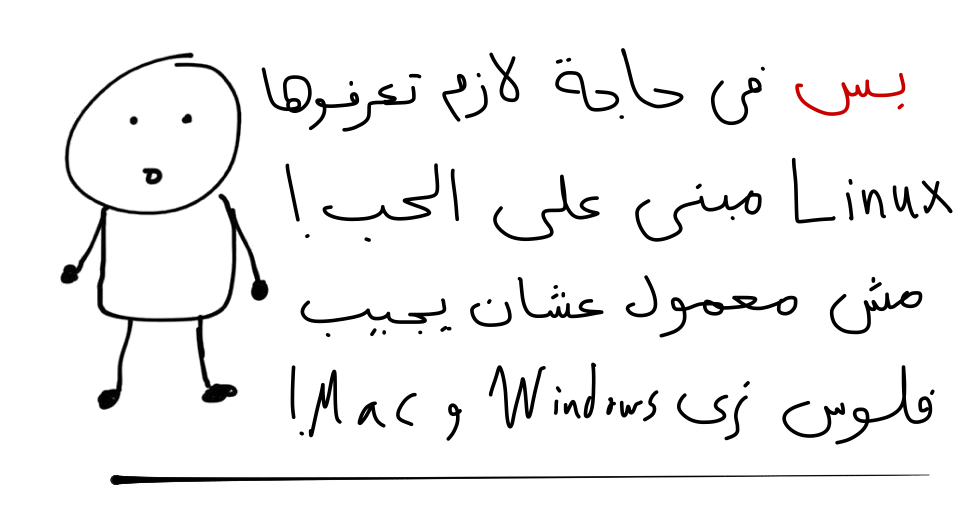 بس في حاجة لازم تعرفوها
Linux مبنى على الحب!
مش معمول عشان يجيب
فلوس زى Windows و Mac!